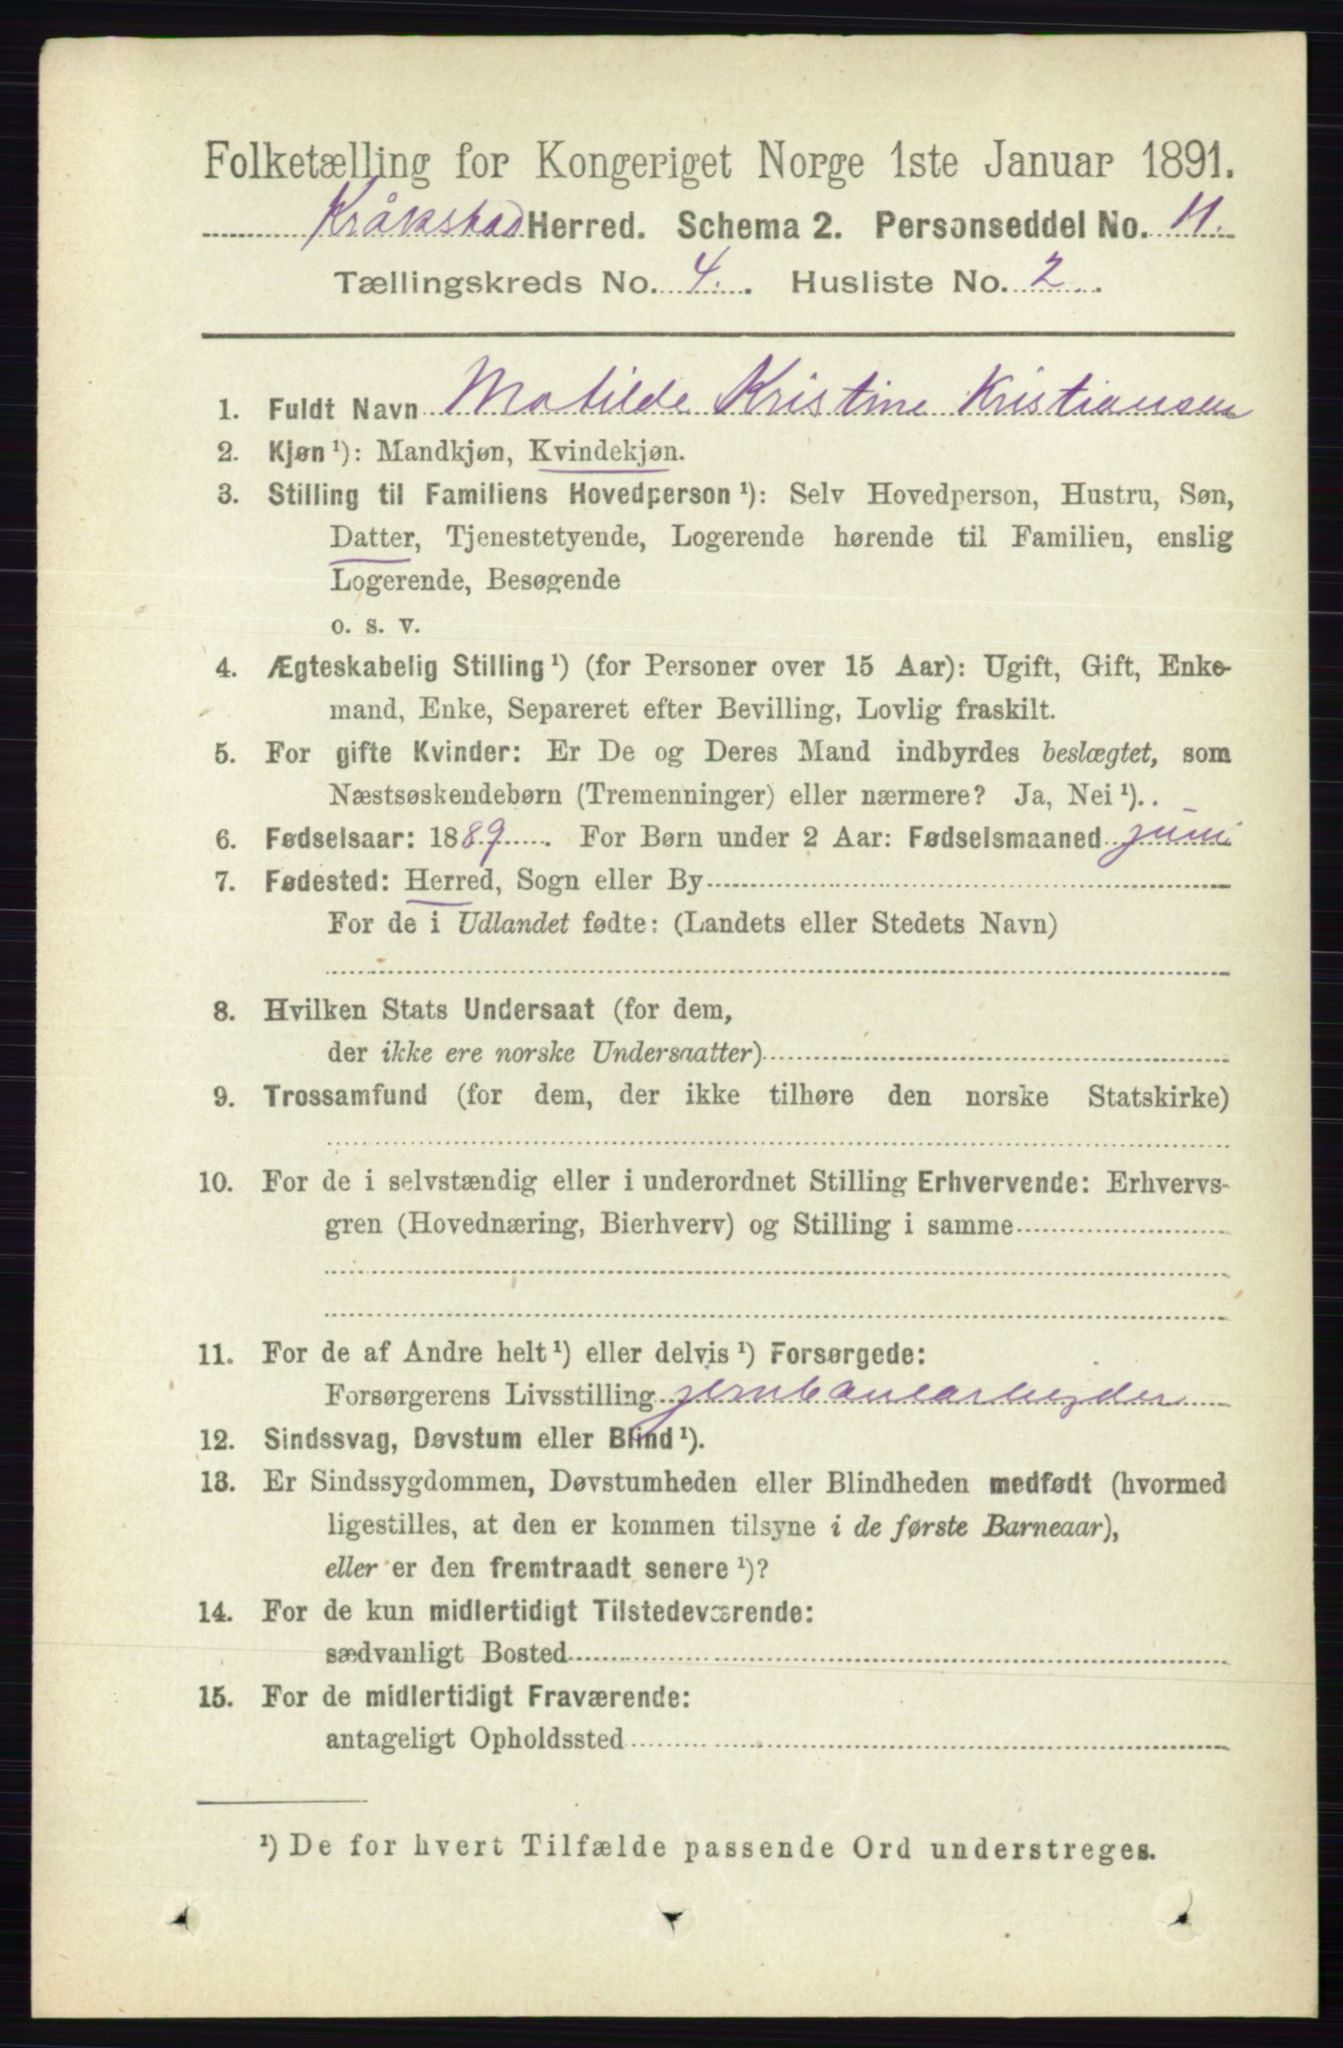 Folketælling for Kongeriget Norge 1ste Januar 1891.
Kråkstad Herred. Schema 2. Personseddel No. 11.
Tællingskreds No. 4. Husliste No. 2.
1. Fuldt Navn Matilde Kristine Kristiansen
2. Kjøn ¹): Mandkjøn, Kvindekjøn.
3. Stilling til Familiens Hovedperson ¹): Selv Hovedperson, Hustru, Søn,
Datter, Tjenestetyende, Logerende hørende til Familien, enslig
Logerende, Besøgende
o. s. v.
4. Ægteskabelig Stilling ¹) (for Personer over 15 Aar): Ugift, Gift, Enke-
mand, Enke, Separeret efter Bevilling, Lovlig fraskilt.
5. For gifte Kvinder: Er De og Deres Mand indbyrdes beslægtet, som
Næstsøskendebørn (Tremenninger) eller nærmere? Ja, Nei ¹)..
6. Fødselsaar: 1889. For Børn under 2 Aar: Fødselsmaaned juni
7. Fødested: Herred, Sogn eller By
For de i Udlandet fødte: (Landets eller Stedets Navn)
8. Hvilken Stats Undersaat (for dem,
der ikke ere norske Undersaatter)
9. Trossamfund (for dem, der ikke tilhøre den norske Statskirke)
10. For de i selvstændig eller i underordnet Stilling Erhvervende: Erhvervs-
gren (Hovednæring, Bierhverv) og Stilling i samme
11. For de af Andre helt ¹) eller delvis ¹) Forsørgede:
Forsørgerens Livsstilling jernbanearbejder
12. Sindssvag, Døvstum eller Blind ¹).
13. Er Sindssygdommen, Døvstumheden eller Blindheden medfødt (hvormed
ligestilles, at den er kommen tilsyne i de første Barneaar),
eller er den fremtraadt senere ¹)?
14. For de kun midlertidigt Tilstedeværende:
sædvanligt Bosted
15. For de midlertidigt Fraværende:
antageligt Opholdssted
¹) De for hvert Tilfælde passende Ord understreges.